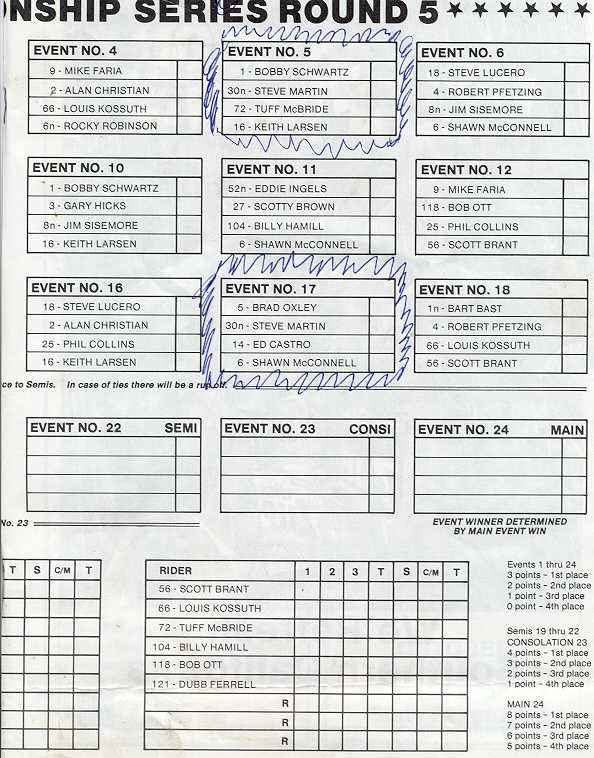 NSHIP SERIES ROUND 5 ★ ★ ★ ★ ★ ★
EVENT NO. 4
9 - MIKE FARIA
2 - ALAN CHRISTIAN
66 - LOUIS KOSSUTH
6n - ROCKY ROBINSON
EVENT NO. 5
1 - BOBBY SCHWARTZ
30n - STEVE MARTIN
72 - TUFF McBRIDE
16 - KEITH LARSEN
EVENT NO. 6
18 - STEVE LUCERO
4 - ROBERT PFETZING
8n - JIM SISEMORE
6 - SHAWN McCONNELL
EVENT NO. 10
1 - BOBBY SCHWARTZ
3 - GARY HICKS
8n - JIM SISEMORE
16 - KEITH LARSEN
EVENT NO. 11
52n - EDDIE INGELS
27 - SCOTTY BROWN
104 - BILLY HAMILL
6 - SHAWN McCONNELL
EVENT NO. 12
9 - MIKE FARIA
118 - BOB OTT
25 - PHIL COLLINS
56 - SCOTT BRANT
EVENT NO. 16
18 - STEVE LUCERO
2 - ALAN CHRISTIAN
25 - PHIL COLLINS
16 - KEITH LARSEN
EVENT NO. 17
5 - BRAD OXLEY
30n - STEVE MARTIN
14 - ED CASTRO
6 - SHAWN McCONNELL
EVENT NO. 18
1n - BART BAST
4 - ROBERT PFETZING
66 - LOUIS KOSSUTH
56 - SCOTT BRANT
ce to Semis. In case of ties there will be a run off.
EVENT NO. 22 SEMI
EVENT NO. 23 CONSI
EVENT NO. 24 MAIN
No. 23
EVENT WINNER DETERMINED
BY MAIN EVENT WIN
T S C/M T
RIDER 1 2 3 T S C/M T
56 - SCOTT BRANT
66 - LOUIS KOSSUTH
72 - TUFF McBRIDE
104 - BILLY HAMILL
118 - BOB OTT
121 - DUBB FERRELL
R
R
R
Events 1 thru 24
3 points - 1st place
2 points - 2nd place
1 point - 3rd place
0 point - 4th place
Semis 19 thru 22
CONSOLATION 23
4 points - 1st place
3 points - 2nd place
2 points - 3rd place
1 point - 4th place
MAIN 24
8 points - 1st place
7 points - 2nd place
6 points - 3rd place
5 points - 4th place